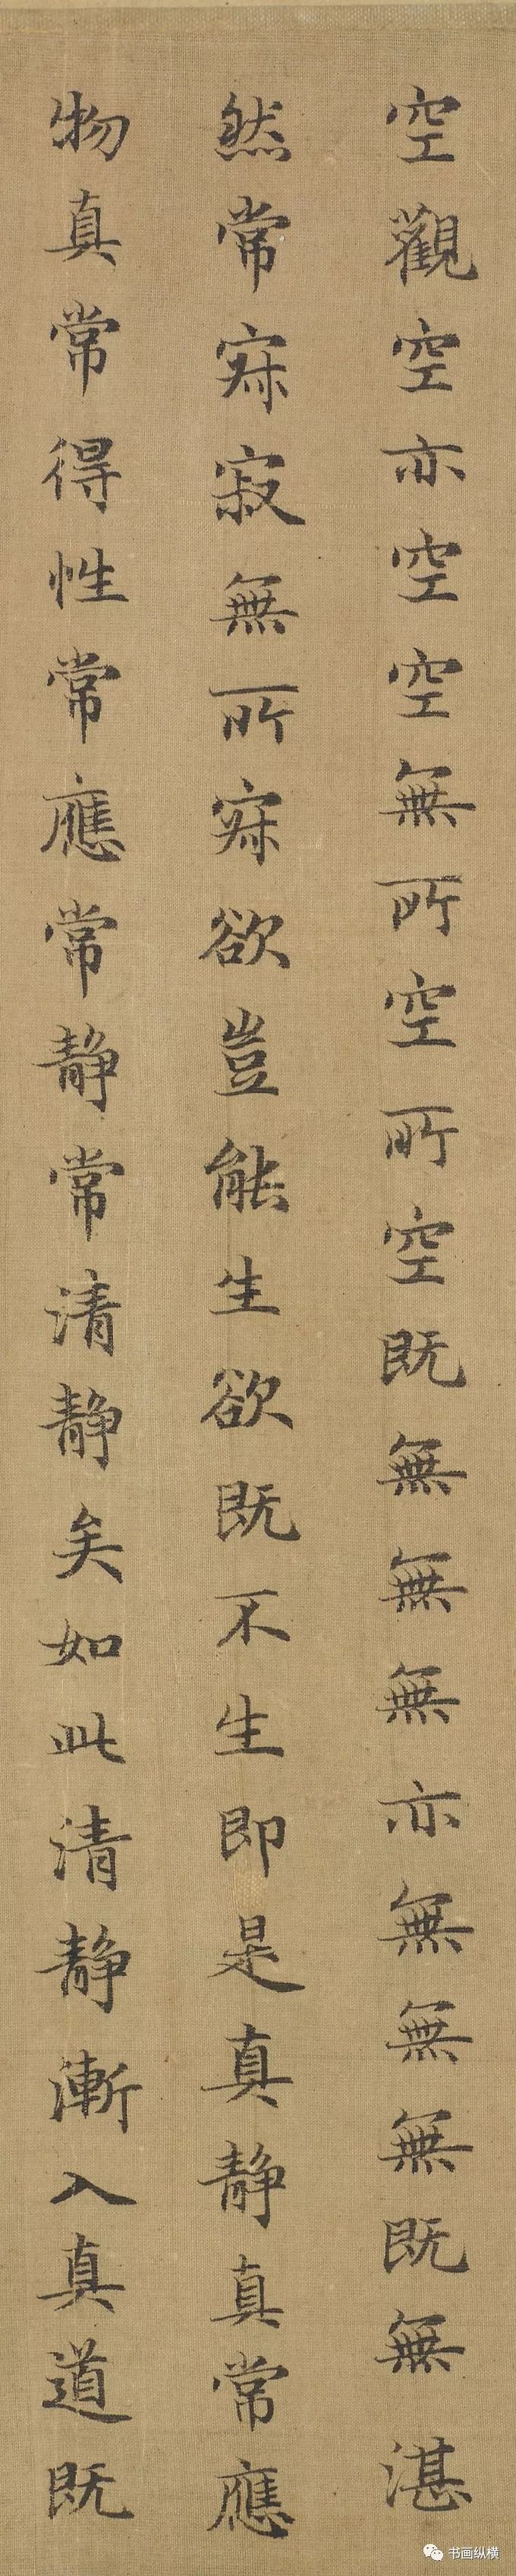 空觀空亦空空無所空所空既無無無亦無無無既無湛
然常寂寂無所寂欲豈能生欲既不生即是真静真常應
物真常得性常應常静常清静矣如此清静漸入真道既
书画纵横